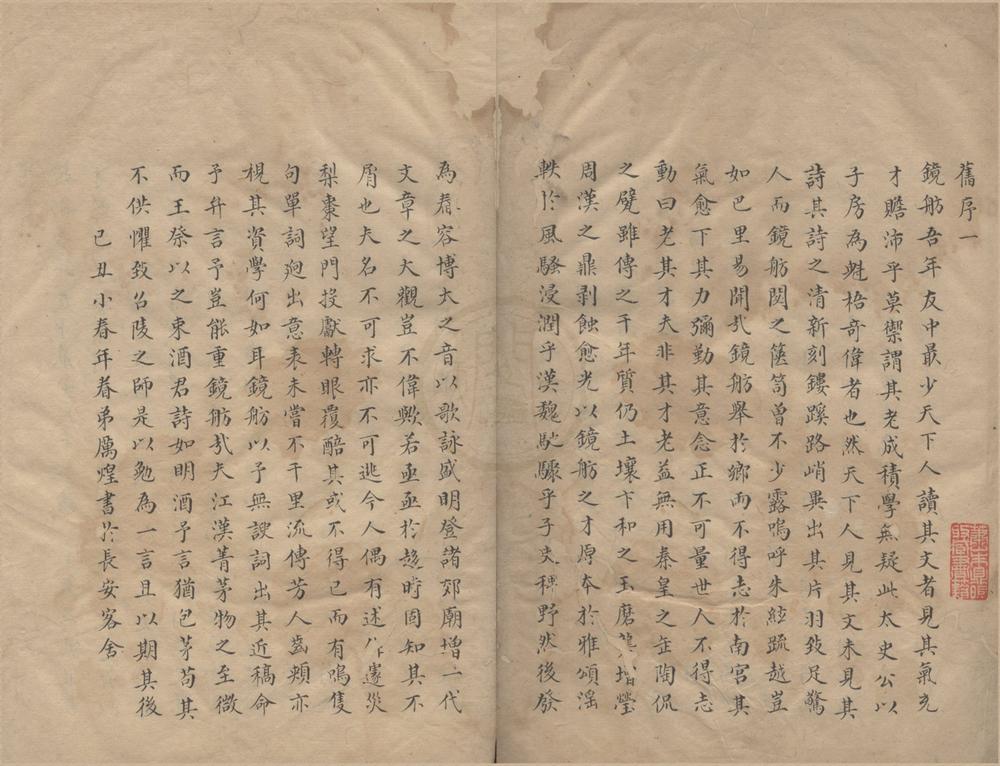 舊序一
鏡舫吾年友中最少天下人讀其文者見其氣充
才贍沛乎莫禦謂其老成積學無疑此太史公以
子房為魁梧奇偉者也然天下人見其文未見其
詩其詩之清新刻鏤蹊路峭異出其片羽致足驚
人而鏡舫閟之篋笥曾不少露嗚呼朱絃疏越豈
如巴里易聞哉鏡舫舉於鄉而不得志於南宮其
氣愈下其力彌勤其意念正不可量世人不得志
動曰老其才夫非其才老益無用秦皇之缶陶侃
之甓雖傳之千年質仍土壤卞和之玉磨礲增瑩
周漢之鼎剥蝕愈光以鏡舫之才原本於雅頌滛
軼於風騷浸潤乎漢魏馳驟乎子史稗野然後發
為舂容博大之音以歌詠盛明登諸郊廟增一代
文章之大觀豈不偉歟若亟亟於趍時固知其不
屑也夫名不可求亦不可逃今人偶有述作遽災
梨棗望門投獻轉眼覆醅其或不得已而有鳴隻
句單詞迥出意表未嘗不千里流傳芳人齒頰亦
視其資學何如耳鏡舫以予無諛詞出其近稿命
予弁言予豈能重鏡舫哉夫江漢菁茅物之至微
而王祭以之束酒君詩如明酒予言猶包茅苟其
不供懼致召陵之師是以勉為一言且以期其後
己丑小春年眷弟厲煌書於長安客舍